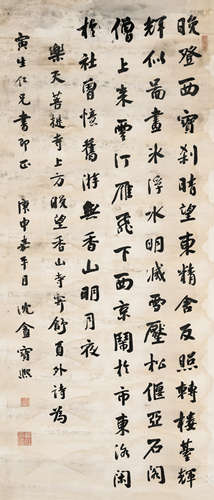 晚登西寶剎晴望東精舍反照轉樓臺輝
輝似圖畫冰浮水明滅雪壓松偃亞石閣
僧上来雲汀雁飛下西京鬧於市東洛閑
於社曾憶舊游無香山明月夜
樂天菩提寺上方晚望香山寺寄舒員外詩為
寅生仁兄書即正 庚申嘉平月 沈盦寶熙